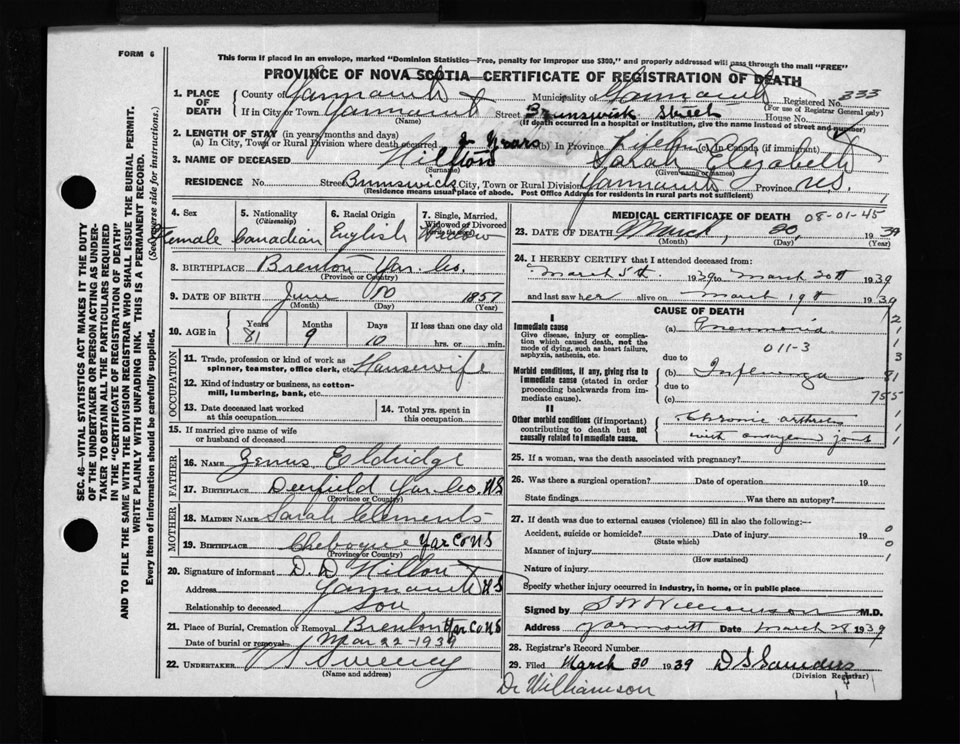 FORM 6
This form if placed in an envelope, marked "Dominion Statistics—Free, penalty for improper use $300," and properly addressed will pass through the mail "FREE"
PROVINCE OF NOVA SCOTIA—CERTIFICATE OF REGISTRATION OF DEATH
1. PLACE OF DEATH
County of Yarmouth Municipality of Yarmouth Registered No. 333
(For use of Registrar General only)
If in City or Town Yarmouth Street Brunswick Street House No.
(Name) (If death occurred in a hospital or institution, give the name instead of street and number)
2. LENGTH OF STAY (in years, months and days)
(a) In City, Town or Rural Division where death occurred 2 Years (b) In Province Lifetime (c) In Canada (if immigrant)
3. NAME OF DECEASED Hilton Sarah Elizabeth
(Surname) (Given name or names)
RESIDENCE No. Street Brunswick City, Town or Rural Division Yarmouth Province N.S.
(Residence means usual place of abode. Post Office Address for residents in rural parts not sufficient)
4. Sex Female
5. Nationality (Citizenship) Canadian
6. Racial Origin English
7. Single, Married, Widowed or Divorced Widow
8. BIRTHPLACE Brenton Yar. Co.
(Province or Country)
9. DATE OF BIRTH June 10 1857
(Month) (Day) (Year)
10. AGE in Years 81 Months 9 Days 10 If less than one day old hrs. or min.
OCCUPATION
11. Trade, profession or kind of work as spinner, teamster, office clerk, etc. Housewife
12. Kind of industry or business, as cotton-mill, lumbering, bank, etc.
13. Date deceased last worked at this occupation
14. Total yrs. spent in this occupation
15. If married give name of wife or husband of deceased
FATHER
16. NAME Zenus Eldridge
17. BIRTHPLACE Deerfield Yar Co NS
(Province or Country)
MOTHER
18. MAIDEN NAME Sarah Clements
19. BIRTHPLACE Chebogue Yar Co NS
(Province or Country)
20. Signature of informant D. D. Hilton
Address Yarmouth NS
Relationship to deceased Son
21. Place of Burial, Cremation or Removal Brenton Yar Co NS
Date of burial or removal Mar 22 - 1939
22. UNDERTAKER Sweeney
(Name and address)
MEDICAL CERTIFICATE OF DEATH 08-01-45
23. DATE OF DEATH March, 20, 1939
(Month) (Day) (Year)
24. I HEREBY CERTIFY that I attended deceased from:
March 5th 1939 to March 20th 1939
and last saw her alive on March 19th 1939
CAUSE OF DEATH
I
Immediate cause
Give disease, injury or complication which caused death, not the mode of dying, such as heart failure, asphyxia, asthenia, etc.
(a) Pneumonia
011-3
due to
Morbid conditions, if any, giving rise to immediate cause (stated in order proceeding backwards from immediate cause).
(b) Influenza
due to
(c)
II
Other morbid conditions (if important) contributing to death but not causally related to immediate cause.
Chronic arthritis
with joint
25. If a woman, was the death associated with pregnancy?
26. Was there a surgical operation? Date of operation 19
State findings Was there an autopsy?
27. If death was due to external causes (violence) fill in also the following:—
Accident, suicide or homicide? Date of injury 19
(State which)
Manner of injury
(How sustained)
Nature of injury
Specify whether injury occurred in industry, in home, or in public place
Signed by S W Williamson M.D.
Address Yarmouth Date March 28 1939
28. Registrar's Record Number
29. Filed March 30 1939 D S Saunders
(Division Registrar)
Dr Williamson
SEC. 46—VITAL STATISTICS ACT MAKES IT THE DUTY OF THE UNDERTAKER OR PERSON ACTING AS UNDERTAKER TO OBTAIN ALL THE PARTICULARS REQUIRED IN THE "CERTIFICATE OF REGISTRATION OF DEATH" AND TO FILE THE SAME WITH THE DIVISION REGISTRAR WHO SHALL ISSUE THE BURIAL PERMIT.
WRITE PLAINLY WITH UNFADING INK. THIS IS A PERMANENT RECORD.
Every item of information should be carefully supplied. (See reverse side for instructions.)